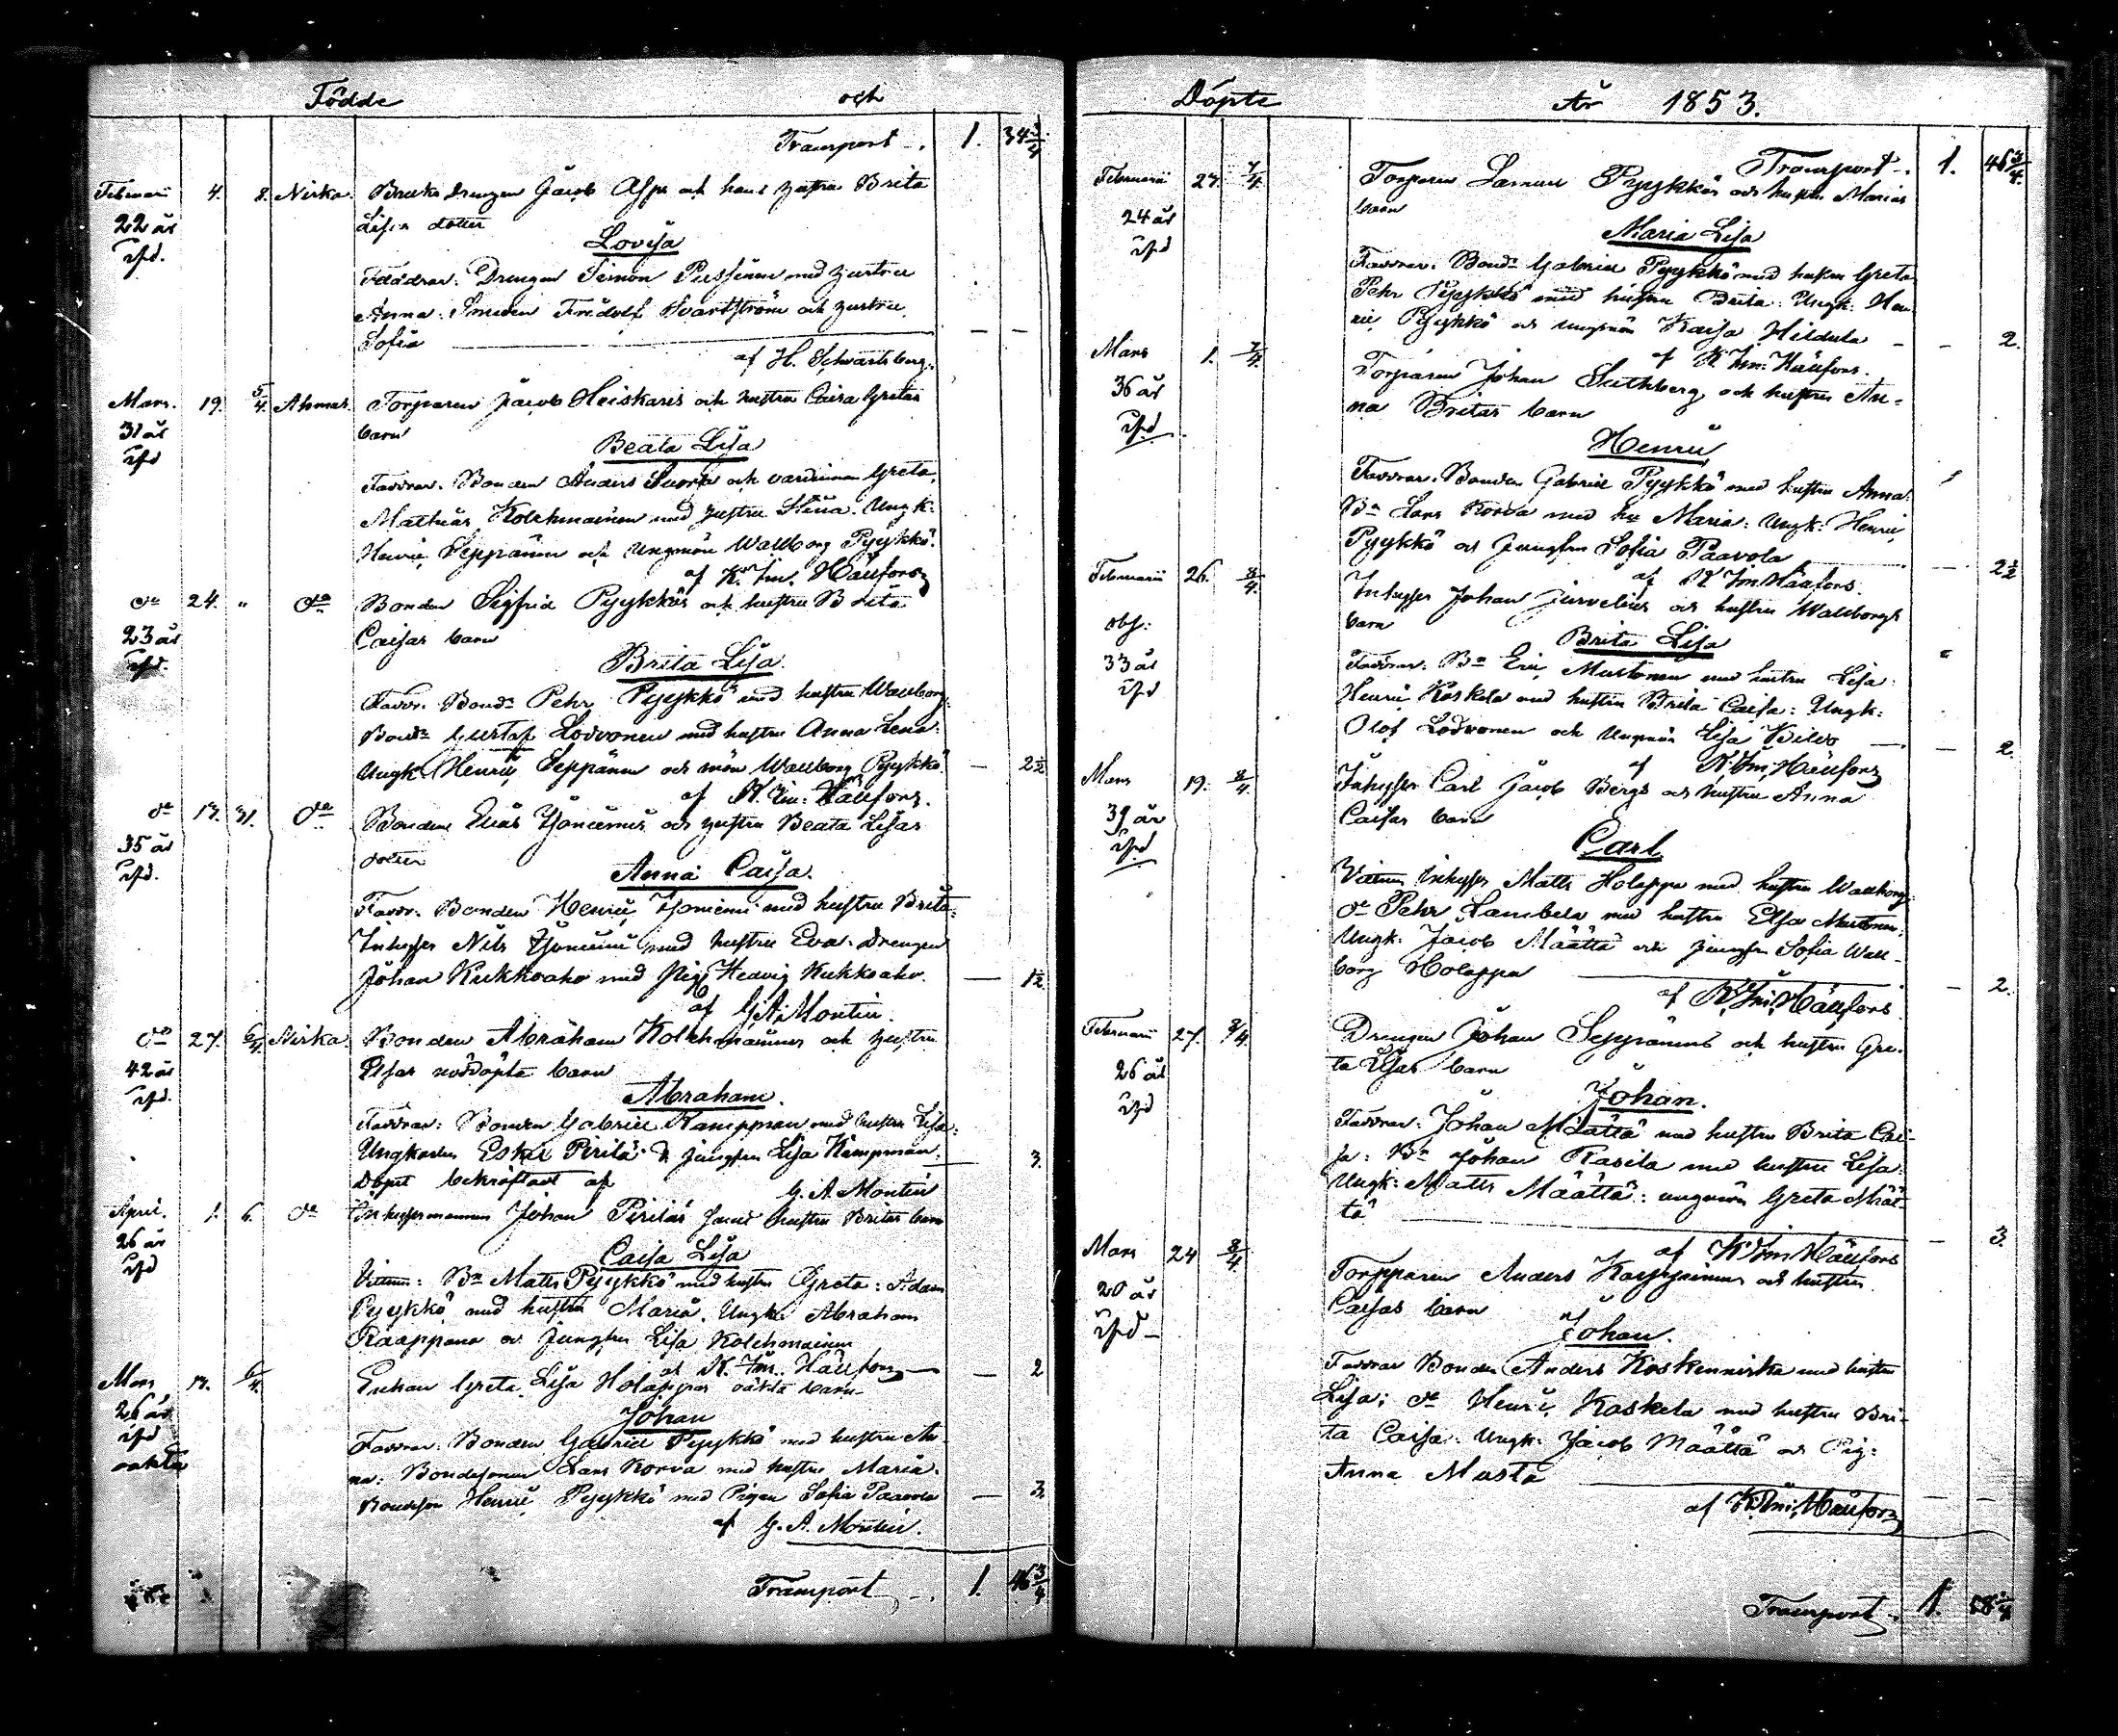 Födde och
Transport 1. 34 3/4
Februarii 4. 8. Nirka. Bruksdrengen Jacob Asps och hans hustru Brita
22 år Lisas dotter
Lovisa
Faddrar: Drengen Simon Pussinen med hustru
Anna: Smeden Fredolf Svartström och hustru
Sofia
af H. Schwartsberg.
Mars. 19. 5/4 Ahmas. Torparen Jacob Heiskaris och hustru Caisa Gretas
31 år barn
Beata Lisa
Faddrar. Bonden Anders och värdinnan Greta,
Mathias Kolehmainen med hustru Stina. Ungk:
Henric Seppänen och ungmön Wallborg Pyykkö.
af K. Im. Häufors
do 24. " do Bonden Sigfrid Pyykkös och hustru Brita
23 år Caisas barn
Brita Lisa.
Faddr. Bondn Pehr Pyykkö med hustru Wallborg:
Bondn Gustaf Lodvonen med hustru Anna Lena:
Ungk: Henric Seppänen och mön Wallborg Pyykkö. — 2 1/2
af K. Im. Häufors.
do 17. 31. do Bonden Elias Tjonienis och hustru Beata Lisas
35 år dotter
Anna Caisa.
Faddr. Bonden Henric med hustru Brita:
Inhyses Nils med hustru Eva: Drengen
Johan Kukkoaho med Pig. Hedvig Kukkoaho. — 1 1/2
af G. A. Montin.
do 27. 6/4 Nirka. Bonden Abraham Kolehmainens och hustru
42 år Elsas nöddöpta barn
Abraham.
Faddrar: Bonden Gabriel Kamppman med hustru Lisa:
Ungkarlen Eskil Pirilä & jungfru Lisa Kämpman. 3.
Dopet bekräftadt af G. A. Montin
April. 1. 6. do Inhysesmannen Johan Piriläs samt hustru Britas barn
26 år Caisa Lisa
Vittnen: Bn Matts Pyykkö med hustru Greta: Adam
Pyykkö med hustru Maria. Ungk: Abraham
Raappana och Jungfru Lisa Kolehmainen
af K. Im. Häufors — 2
Mars 17. 6/4. Enkan Greta Lisa Holappas oäkta barn
26 år Johan
oäkta Faddrar: Bonden Gabriel Pyykkö med hustru An-
na: Bondesonen Lars Korva med hustru Maria.
Bondeson Henric Pyykkö med Pigan Sofia Paavola — 3.
af G. A. Montin.
Transport 1. 46 3/4

Döpte År 1853.
Transport 1. 46 3/4.
Februarii 27. 7/4. Torparen Samuel Pyykkös och hustru Marias
24 år barn
Maria Lisa
Faddrar. Bondn Gabriel Pyykkö med hustru Greta
Pehr Pyykkö med hustru Brita: Ungk: Hen-
ric Pyykkö och ungmön Kaisa Heidula — 2.
af K. Im. Häufors.
Mars 1. 7/4. Torparen Johan Sethberg och hustru An-
36 år na Britas barn
Henric
Faddrar. Bonden Gabriel Pyykkö med hustru Anna:
Bn Lars Korva med hu Maria: Ungk: Henric
Pyykkö och Jungfru Sofia Paavola — 2 1/2
af K Im Häufors.
Februarii 26. 8/4. Inhyses Johan Jurvelius och hustru Wallborgs
obs: barn
33 år Brita Lisa
Faddrar. Bn Eric Mustonen med hustru Lisa:
Henric Koskela med hustru Brita Caisa: Ungk:
Olof Lodvonen och ungmön Lisa — 2.
af K. Im. Häufors
Mars 19. 8/4. Inhyses Carl Jacob Bergs och hustru Anna
39 år Caisas barn
Carl
Vittnen Inhyses Matts Holappa med hustru Wallborg
do Pehr med hustru Elsa Mustonen:
Ungk: Jacob Määttä och jungfru Sofia Wall-
borg Holappa — 2.
af K. Im. Häufors
Februarii 27. 8/4. Drengen Johan Seppänens och hustru Gre-
26 år ta Lisas barn
Johan.
Faddrar: Johan Määttä med hustru Brita Cai-
sa: Bn Johan Rasila med hustru Lisa:
Ungk: Matts Määttä: ungmön Greta Määt-
tä — 3.
af K Im Häufors
Mars 24 8/4. Torpparen Anders och hustru
20 år Caisas barn
Johan.
Faddrar Bonden Anders Koskenniska med hustru
Lisa; do Henric Koskela med hustru Bri-
ta Caisa. Ungk: Jacob Määttä och Pig:
Anna Musta
af K. Im. Häufors
Transport 1. 58 1/4